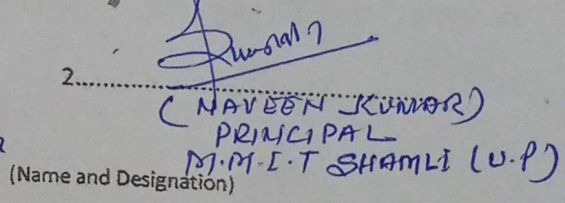 2....................................................
( NAVEEN KUMAR )
PRINCIPAL
M.M.I.T SHAMLI (U.P)
(Name and Designation)